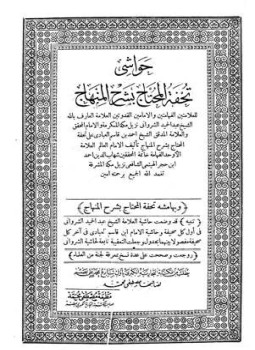 حواشي
تحفة المحتاج بشرح المنهاج
للعلامتين الفهامتين والامامين القدوتين العلامة العارف بالله
الشيخ عبد الحميد الشرواني نزيل مكة المكرمة والامام المحقق
والعلامة المدقق الشيخ احمد بن قاسم العبادي على تحفة
المحتاج بشرح المنهاج تأليف الامام العالم العلامة
الأوحد الفهامة خاتمة المحققين شهاب الدين احمد
ابن حجر الهيتمي الشافعي نزيل مكة المشرفة
تغمد الله الجميع برحمته آمين
(وبهامشه تحفة المحتاج بشرح المنهاج)
(تنبيه) قد وضعت حاشية العلامة الشيخ عبد الحميد الشرواني
في أول كل صحيفة وحاشية الامام ابن قاسم العبادي في آخر كل
صحيفة مفصولا بينهما بجدول
(روجعت وصححت على عدة نسخ بمعرفة لجنة من العلماء)